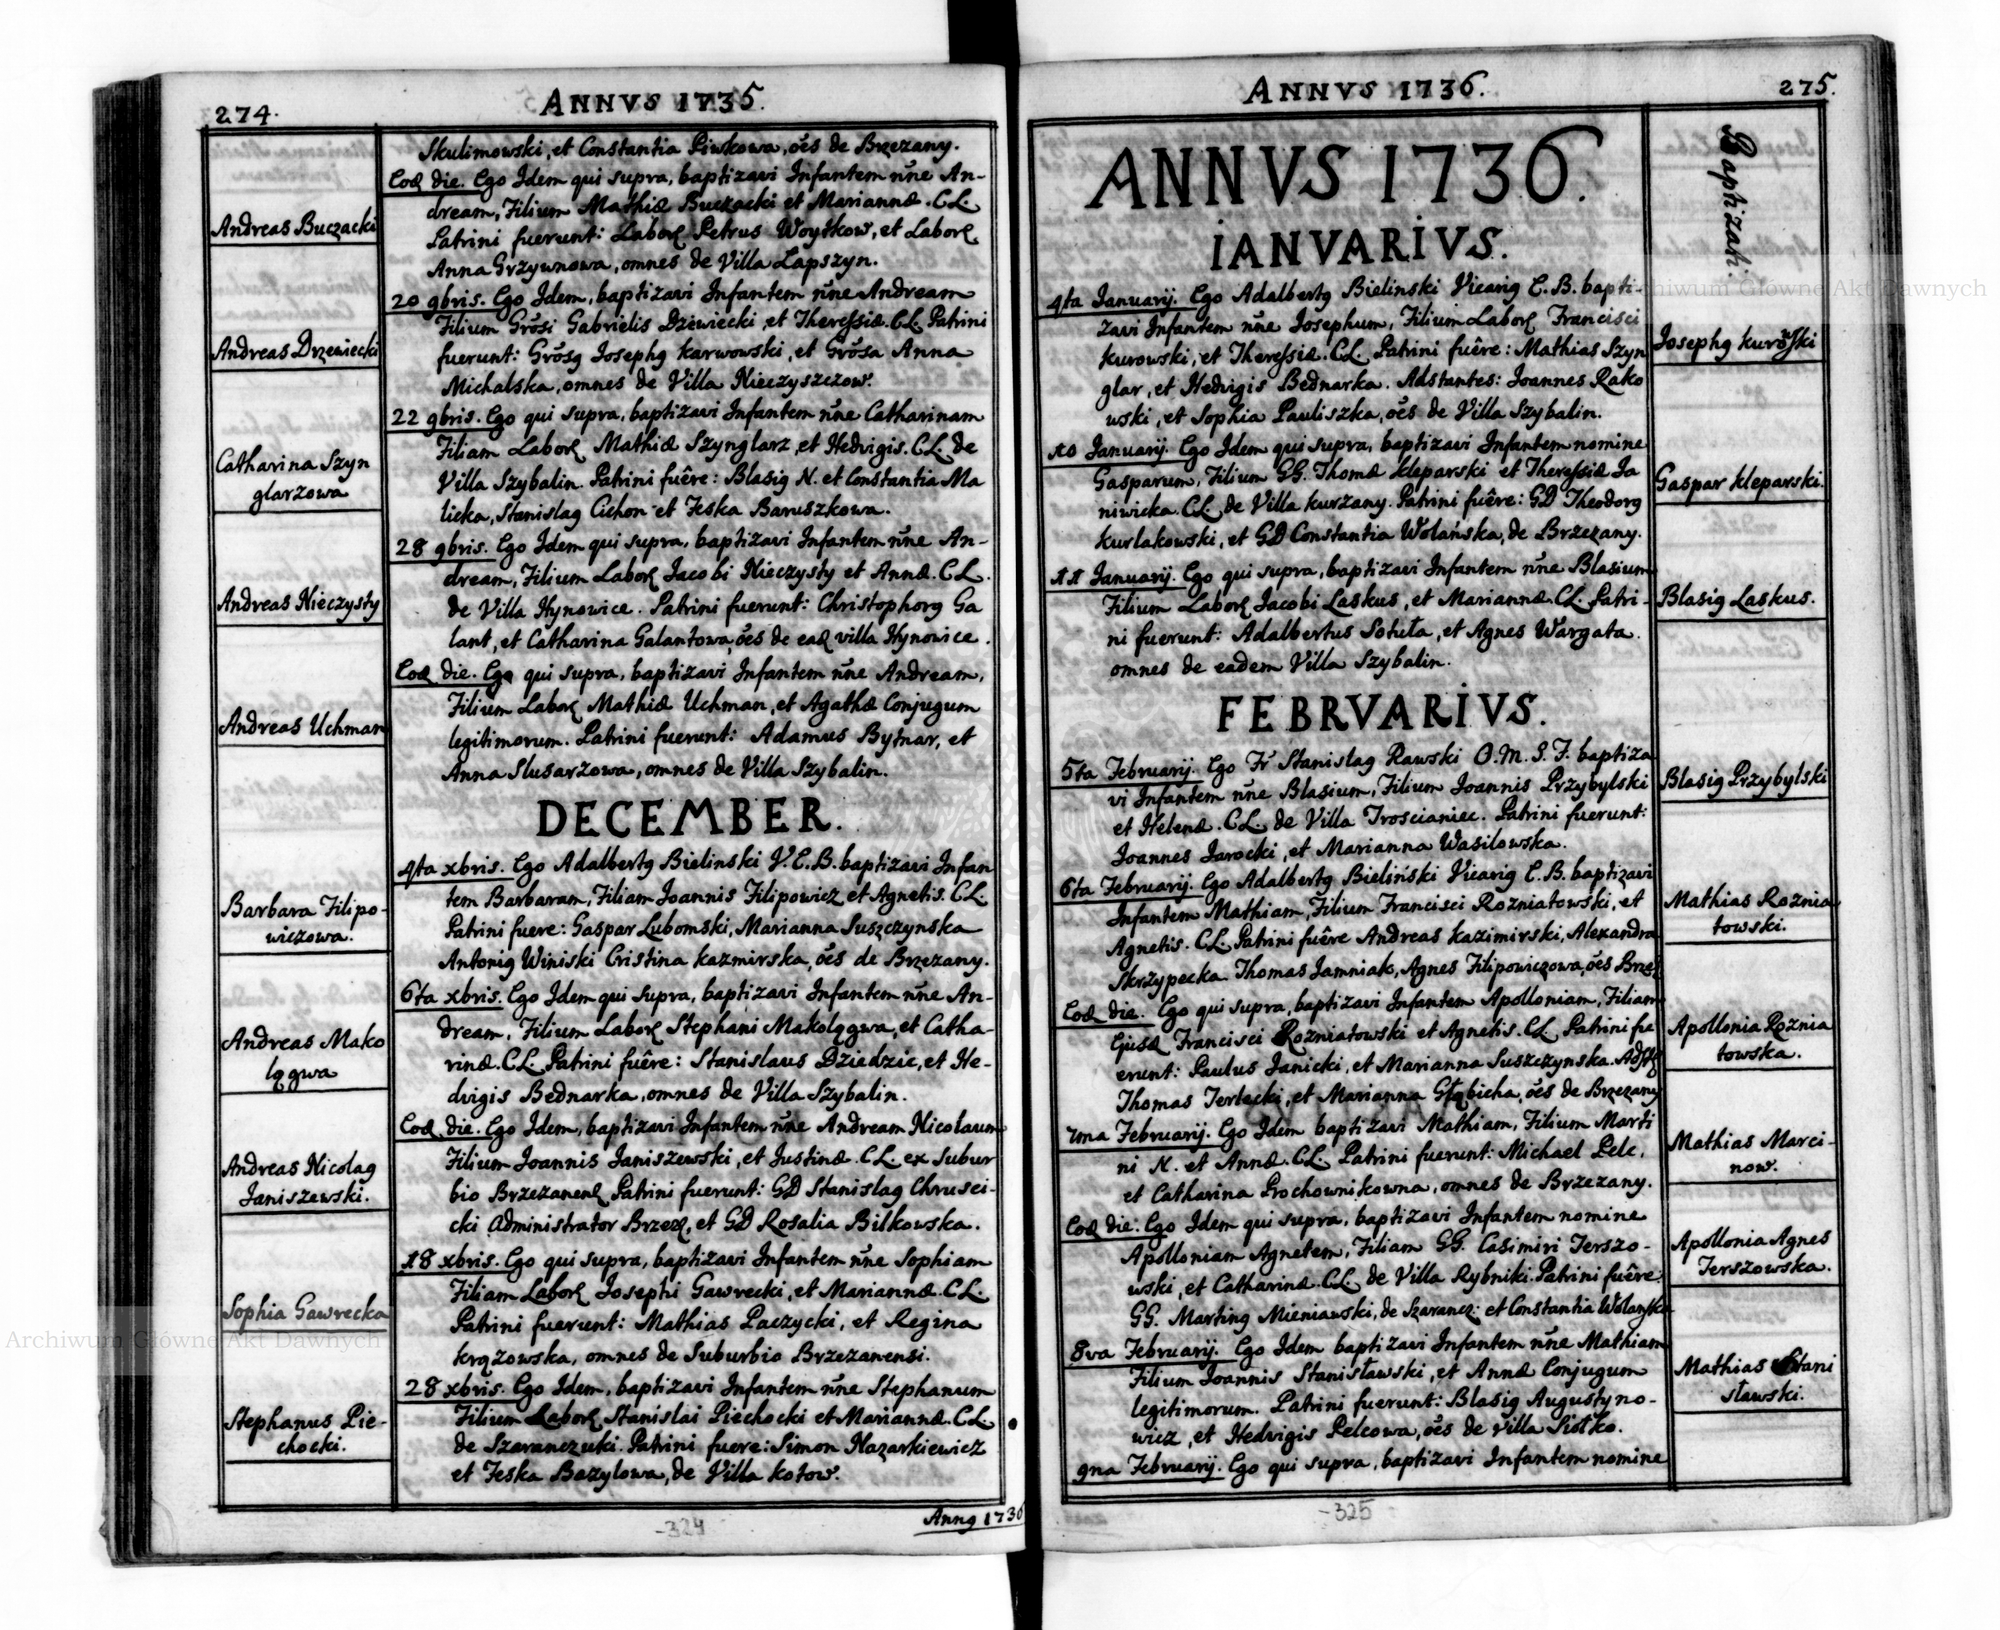 274.
ANNVS 1735.
Skulimowski, et Constantia Piwkowa, oẽs de Brzezany.
Andreas Buczacki
Eod die. Ego Idem qui supra, baptizavi Infantem nñe An-
dream, Filium Mathiæ Buczacki et Mariannæ. CL.
Patrini fuerunt: Labor Petrus Woytkow, et Labor
Anna Grzywnowa, omnes de Villa Lapszyn.
Andreas Drzewiecki
20 9bris. Ego Idem, baptizavi Infantem nñe Andream
Filium Grõsi Gabrielis Dziewiecki et Theressiæ. CL. Patrini
fuerunt: Grõsg Josephg Karwowski, et Grõsa Anna
Michalska, omnes de Villa Nieczyszczow.
Catharina Szyn
glarzowa
22 9bris. Ego qui supra, baptizavi Infantem nñe Catharinam
Filiam Labor Mathiæ Szynglarz, et Hedvigis. CL. de
Villa Szybalin. Patrini fuêre: Blasig N. et Constantia Ma
licka, Stanislag Cichon et Feska Baruszkowa.
Andreas Nieczysty
28 9bris. Ego Idem qui supra, baptizavi Infantem nñe An-
dream, Filium Labor Jacobi Nieczysty et Annæ. CL.
de Villa Hynowice. Patrini fuerunt: Christophorg Ga
lant, et Catharina Galantowa, oẽs de ead villa Hynowice.
Andreas Uchman
Eod die. Ego qui supra, baptizavi Infantem nñe Andream,
Filium Labor Mathiæ Uchman, et Agathæ Conjugum
legitimorum. Patrini fuerunt: Adamus Bytnar, et
Anna Slusarzowa, omnes de Villa Szybalin.
DECEMBER.
Barbara Filipo-
wiczowa.
4ta xbris. Ego Adalbertg Bielinski V. E. B. baptizavi Infan
tem Barbaram, Filiam Joannis Filipowicz et Agnetis. CL.
Patrini fuere: Gaspar Lubomski, Marianna Suszczynska
Antonig Winiski Cristina Kazmirska, oẽs de Brzezany.
Andreas Mako
lągwa
6ta xbris. Ego Idem qui supra, baptizavi Infantem nñe An-
dream, Filium Labor Stephani Makolągwa, et Catha-
rinæ. CL. Patrini fuêre: Stanislaus Dziedzic, et He-
dvigis Bednarka, omnes de Villa Szybalin.
Andreas Nicolag
Janiszewski.
Eod die. Ego Idem, baptizavi Infantem nñe Andream Nicolaum
Filium Joannis Janiszewski, et Justinæ. CL. ex Subur
bio Brzezanen Patrini fuerunt: GD Stanislag Chrusci-
cki Administrator Brzez, et GD Rosalia Bilkowska.
Sophia Gawrecka
18 xbris. Ego qui supra, baptizavi Infantem nñe Sophiam
Filiam Labor Josephi Gawrecki, et Mariannæ. CL.
Patrini fuerunt: Mathias Paczycki, et Regina
Krązowska, omnes de Suburbio Brzezanensi.
Stephanus Pie-
chocki.
28 xbris. Ego Idem, baptizavi Infantem nñe Stephanum
Filium Labor Stanislai Piechocki et Mariannæ. CL
de Szaranczuki. Patrini fuere: Simon Nazarkiewicz
et Feska Bazylowa, de Villa Kotow.
Anng 1736
-324
ANNVS 1736.
275.
Baptizati.
ANNVS 1736.
IANVARIVS.
4ta Januarij. Ego Adalbertg Bielinski Vicarig E. B. bapti-
zavi Infantem nñe Josephum, Filium Labor Francisci
Kurowski, et Theressiæ. CL. Patrini fuêre: Mathias Szyn
glar, et Hedvigis Bednarka. Adstantes: Joannes Rako
wski, et Sophia Pauliszka, oẽs de Villa Szybalin.
Josephg Kurowski
10 Januarij. Ego Idem qui supra, baptizavi Infantem nomine
Gasparum, Filium GG. Thomæ Kleparski et Theressiæ Ja
niwicka. CL. de Villa Kurzany. Patrini fuêre: GD Theodorg
Kurlakowski, et GD Constantia Wolańska, de Brzezany.
Gaspar Kleparski.
11 Januarij. Ego qui supra, baptizavi Infantem nñe Blasium
Filium Labor Jacobi Laskus, et Mariannæ. CL. Patri-
ni fuerunt: Adalbertus Sotuła, et Agnes Wargata.
omnes de eadem Villa Szybalin.
Blasig Laskus.
FEBRVARIVS.
5ta Februarij. Ego Fr Stanislag Rawski O. M. S. F. baptiza
vi Infantem nñe Blasium, Filium Joannis Przybylski
et Helenæ. CL. de Villa Troscianiec. Patrini fuerunt:
Joannes Jarocki, et Marianna Wasilowska.
Blasig Przybylski
6ta Februarij. Ego Adalbertg Bieliński Vicarig E. B. baptizavi
Infantem Mathiam, Filium Francisci Rozniatowski, et
Agnetis. CL. Patrini fuêre Andreas Kazimirski, Alexandra
Skrzypecka Thomas Jamniak, Agnes Filipowiczowa, oẽs Brzez
Mathias Roznia
towski.
Eod die. Ego qui supra, baptizavi Infantem Apolloniam, Filiam
Ejusd Francisci Rozniatowski et Agnetis. CL. Patrini fu
erunt: Paulus Janicki, et Marianna Suszczynska. Adst
Thomas Terlecki, et Marianna Głąbicha, oẽs de Brzezany
Apollonia Roznia
towska.
7ma Februarij. Ego Idem baptizavi Mathiam, Filium Marti
ni N. et Annæ. CL. Patrini fuerunt: Michael Pelc,
et Catharina Grochownikowna, omnes de Brzezany.
Mathias Marci-
now.
Eod die. Ego Idem qui supra, baptizavi Infantem nomine
Apolloniam Agnetem, Filiam GG. Casimiri Terszo-
wski, et Catharinæ. CL. de Villa Rybniki. Patrini fuêre:
GG. Marting Mieniawski, de Szarancz: et Constantia Wolanska
Apollonia Agnes
Terszowska.
8va Februarij. Ego Idem baptizavi Infantem nñe Mathiam
Filium Joannis Stanisławski, et Annæ Conjugum
legitimorum. Patrini fuerunt: Blasig Augustyno-
wicz, et Hedvigis Pelcowa, oẽs de Villa Siołko.
Mathias Stani
sławski.
9na Februarij. Ego qui supra, baptizavi Infantem nomine
-325
Archiwum Główne Akt Dawnych
Archiwum Główne Akt Dawnych